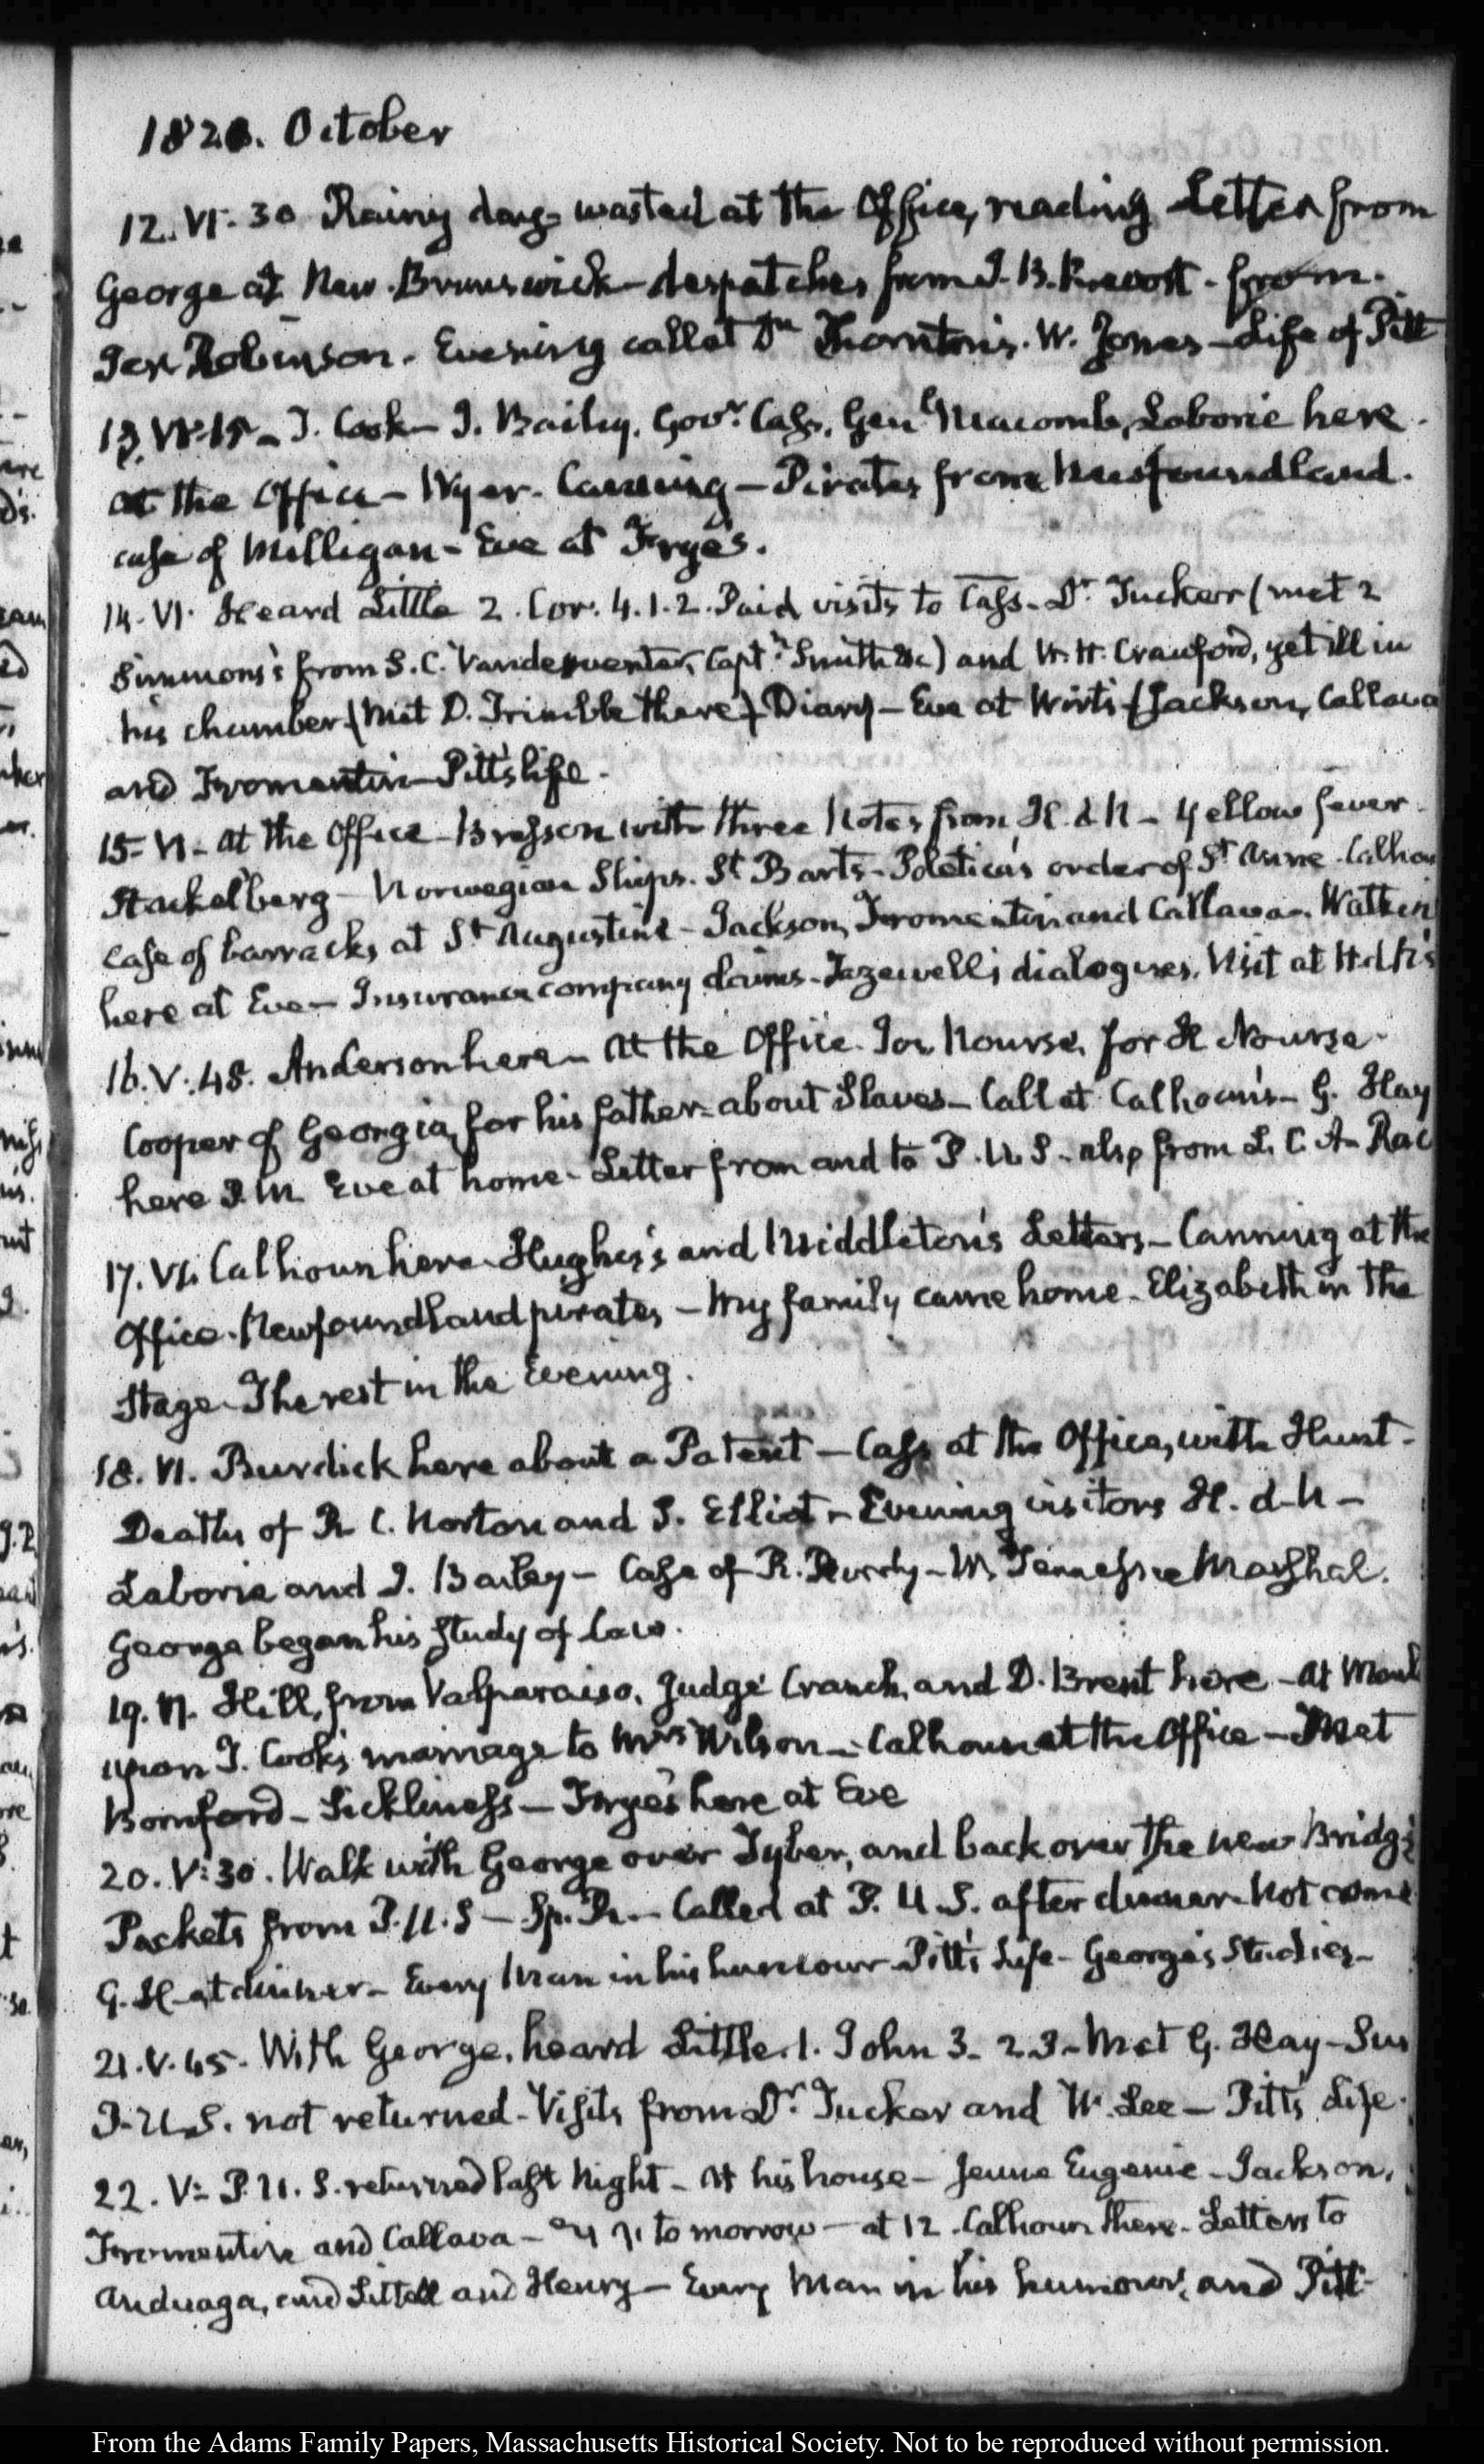 1821. October
12. VI. 30 Rainy day wasted at the Office, reading Letter from
George at New Brunswick - despatches from J. B. Prevost - from
Jer Robinson. Evening call at Dr Thornton's. W. Jones - Life of Pitt
13. VI:15 - J. Cook - J. Bailey. Govr. Cass, Genl Macomb, Laborie here.
at the Office - Wyer. Canning - Pirates from Newfoundland.
case of Milligan - Eve at Frye's.
14. VI. Heard Little 2. Cor. 4. 1. 2. Paid visits to Cass - Dr. Tucker (met 2
Simmons's from S. C. Vandeventer, Captn. Smith &c) and W. H. Crawford, yet ill in
his chamber (met D. Trimble there) Diary - Eve at Wirt's (Jackson, Callava
and Fromentin - Pitt's life -
15. VI - at the Office - Bresson with three Notes from H. d. N - Yellow fever.
Stackelberg - Norwegian Ships. St Barts - Poletica's order of St Anne. Calhou
Case of barracks at St Augustine - Jackson, Fromentin and Callava. Watkin
here at Eve - Insurance company claims - Tazewell's dialogues. Visit at H. d. N's
16. V:48. Anderson here - At the Office. Jos. Nourse, for H Nourse.
Cooper of Georgia, for his father - about Slaves - Call at Calhoun's - G. Hay
here Eve at home - Letter from and to P. U. S - also from L. C. A-
17. VI. Calhoun here. Hughes's and Middleton's Letters - Canning at the
Office. Newfoundland pirates - My family came home - Elizabeth in the
Stage - The rest in the Evening.
18. VI. Burdick here about a Patent - Cass at the Office, with Hunt -
Deaths of R C. Norton and J. Elliot - Evening visitors H. d. N -
Laborie and J. Bailey - Case of R. Purdy - W. Tennessee Marshal.
George began his study of Law.
19. VI. Hill, from Valparaiso, Judge Cranch, and D. Brent here - at
upon J. Cook's marriage to Mrs Wilson - Calhoun at the Office - Met
Bomford - Sickliness - Frye's here at Eve
20. V:30. Walk with George over Tyber, and back over the new Bridge
Packets from P. U. S - Called at P. U. S. after dinner. Not come
G. H - at dinner - Every Man in his humour - Pitt's Life - George's Studies -
21. V. 45. With George, heard Little. 1. John 3. 2. 3 - Met G. Hay -
P. U. S. not returned - Visits from Dr. Tucker and W. Lee - Pitt's Life.
22. V: P. U. S. returned last Night - At his house - Jeune Eugenie - Jackson,
Fromentin and Callava - to morrow - at 12. Calhoun there. Letters to
Anduaga, and Littell and Henry - Every Man in his humour, and Pitt -
From the Adams Family Papers, Massachusetts Historical Society. Not to be reproduced without permission.